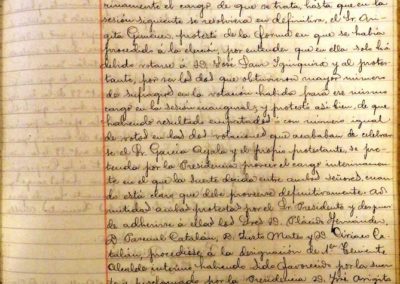 rinamente el cargo de que se trata, hasta que en la
sesión siguiente se resolviera en definitiva, el Sr. An-
gita Gimenez, protestó de la forma en que se había
procedido á la elección, por entender que en ella solo ha
debido votarse á D. José San y al protes-
tante, por ser los dos que obtuvieron mayor número
de sufragios en la votación habida para ese mismo
cargo en la sesión inaugural; y protestó así bien, de que
habiendo resultado empatados ó con número igual
de votos en las dos votaciones que acababan de celebrar-
se el Sr. Garcia Ayala y el propio protestante, se pre-
tenda por la Presidencia proveer el cargo interinamen-
te en el que la suerte decida entre ambos señores, cuan-
do está claro que debe proveerse definitivamente. Ad-
mitidas ambas protestas por el Sr. Presidente y despues
de adherirse á ellas los Sres. D. Plácido Fernández,
D. Pascual Catalán, D. Justo Mateo y D. Ciriaco Ca-
talán, procediose á la designación de 1er Teniente
Alcalde interino, habiendo sido favorecido por la suer-
te y proclamado por la Presidencia D. José Angita